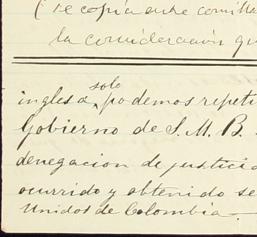 (se copia entre comilla
la consideración qu
solo
inglesa, podemos repeti
Gobierno de S. M. B.
denegacion de justicia
ocurrido y obtenido se
Unidos de Colombia.—